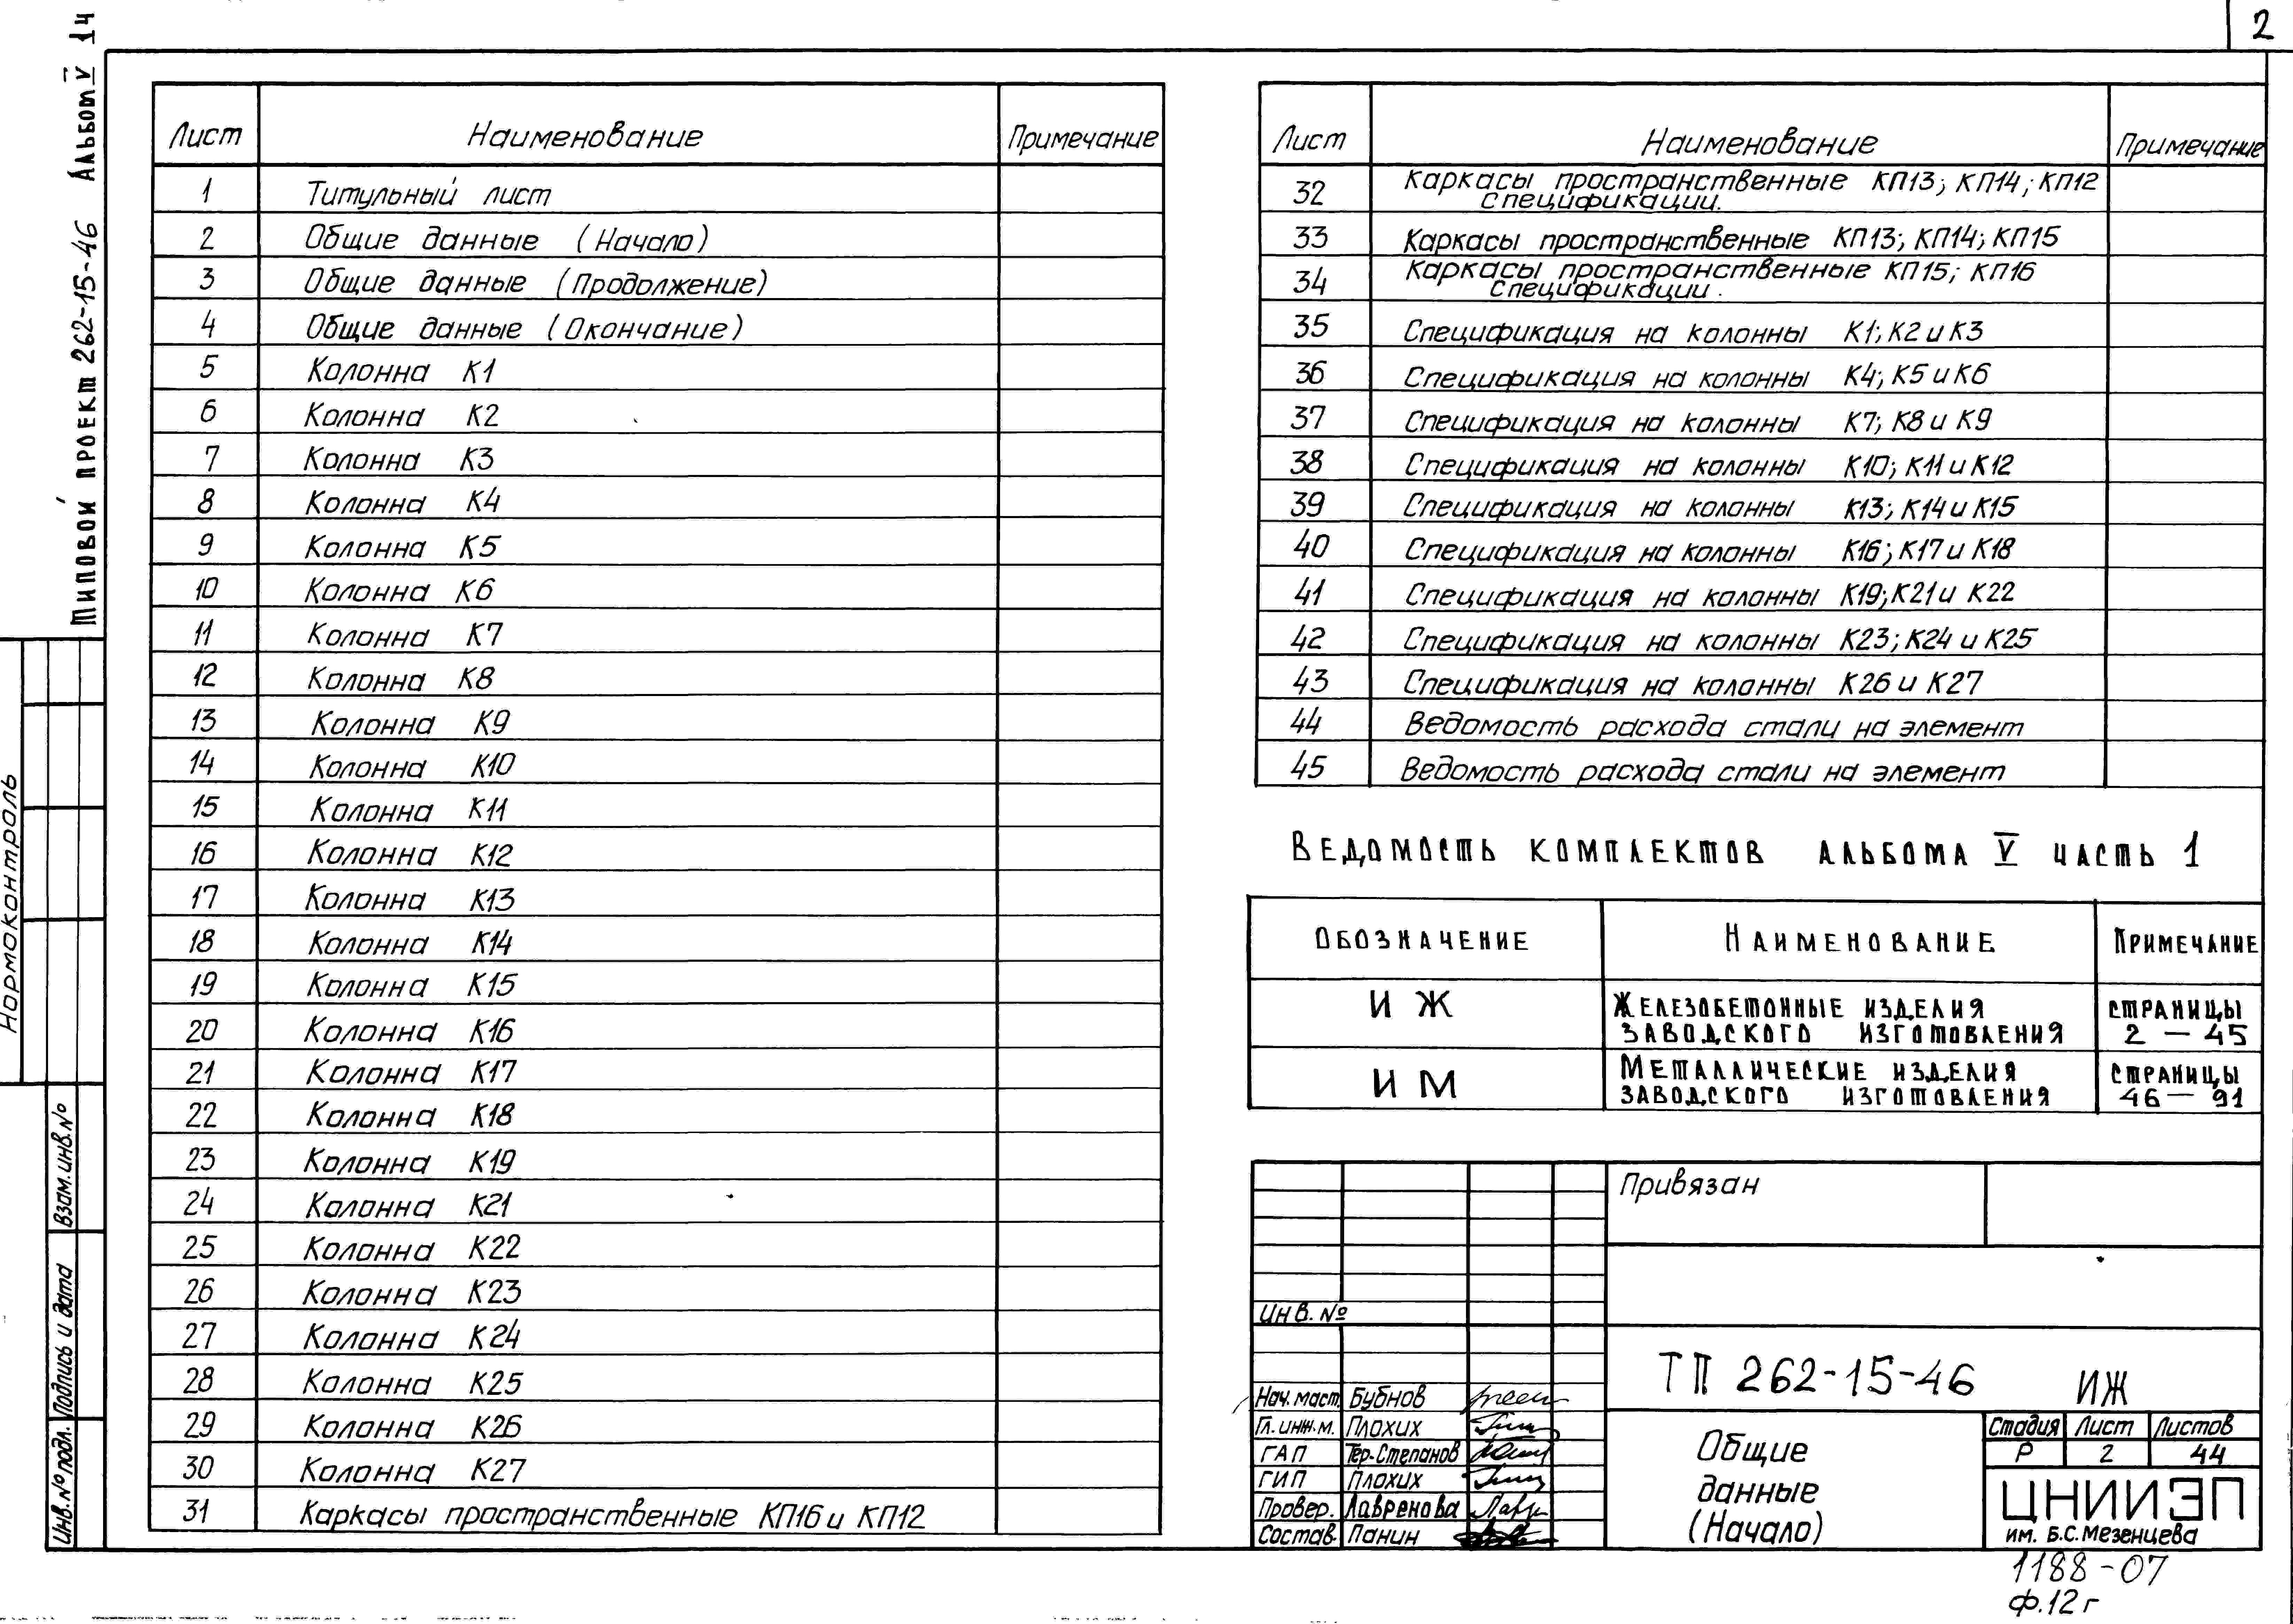 2
Типовой проект 262-15-46 Альбом V 1ч
Нормоконтроль
Взам. инв. №
Подпись и дата
Инв. № подл.
Лист Наименование Примечание
1 Титульный лист
2 Общие данные (Начало)
3 Общие данные (Продолжение)
4 Общие данные (Окончание)
5 Колонна К1
6 Колонна К2
7 Колонна К3
8 Колонна К4
9 Колонна К5
10 Колонна К6
11 Колонна К7
12 Колонна К8
13 Колонна К9
14 Колонна К10
15 Колонна К11
16 Колонна К12
17 Колонна К13
18 Колонна К14
19 Колонна К15
20 Колонна К16
21 Колонна К17
22 Колонна К18
23 Колонна К19
24 Колонна К21
25 Колонна К22
26 Колонна К23
27 Колонна К24
28 Колонна К25
29 Колонна К26
30 Колонна К27
31 Каркасы пространственные КП16 и КП12
Лист Наименование Примечание
32 Каркасы пространственные КП13; КП14; КП12
спецификации.
33 Каркасы пространственные КП13; КП14; КП15
34 Каркасы пространственные КП15; КП16
спецификации.
35 Спецификация на колонны К1; К2 и К3
36 Спецификация на колонны К4; К5 и К6
37 Спецификация на колонны К7; К8 и К9
38 Спецификация на колонны К10; К11 и К12
39 Спецификация на колонны К13; К14 и К15
40 Спецификация на колонны К16; К17 и К18
41 Спецификация на колонны К19; К21 и К22
42 Спецификация на колонны К23; К24 и К25
43 Спецификация на колонны К26 и К27
44 Ведомость расхода стали на элемент
45 Ведомость расхода стали на элемент
Ведомость комплектов альбома V часть 1
Обозначение Наименование Примечание
ИЖ Железобетонные изделия страницы
заводского изготовления 2 — 45
ИМ Металлические изделия страницы
заводского изготовления 46 — 91
Привязан
Инв. №
ТП 262-15-46 ИЖ
Нач. маст. Бубнов
Гл. инж. м. Плохих
ГАП Тер-Степанов
ГИП Плохих
Провер. Лавренова
Состав. Панин
Общие
данные
(Начало)
Стадия Лист Листов
Р 2 44
ЦНИИЭП
им. Б.С. Мезенцева
1188-07
ф.12г